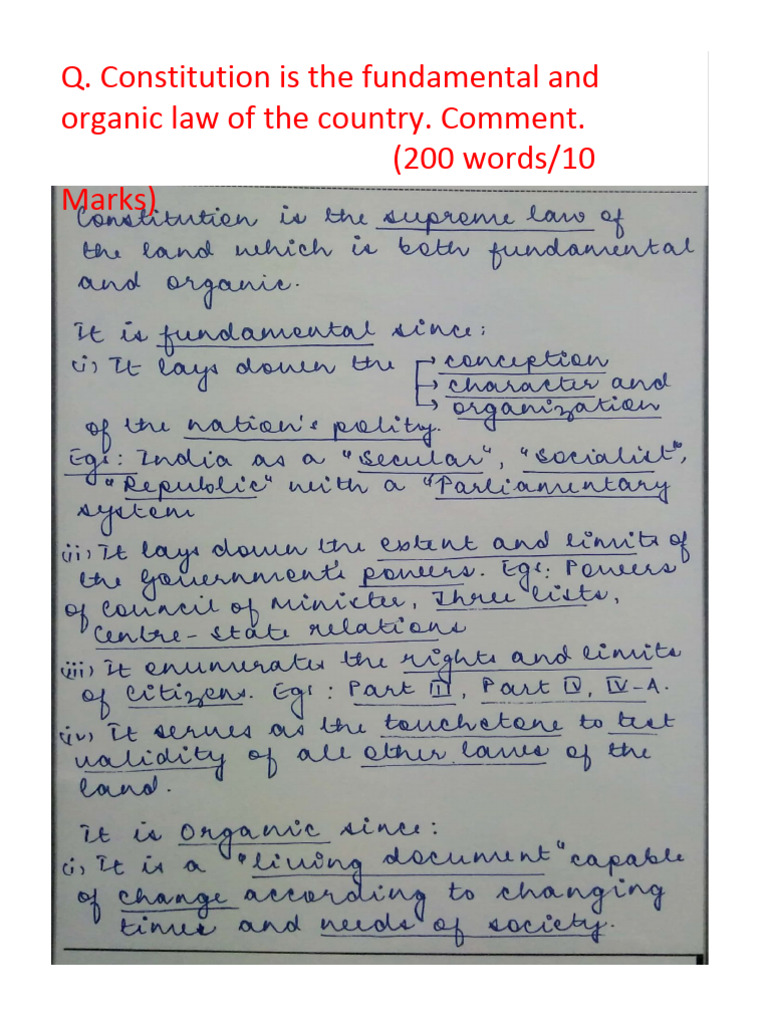 Q. Constitution is the fundamental and
organic law of the country. Comment.
(200 words/10
Marks)
Constitution is the supreme law of
the land which is both fundamental
and organic.
It is fundamental since:
(i) It lays down the → conception
→ character and
→ organization
of the nation's polity.
Egs: India as a "Secular", "Socialist",
"Republic" with a "Parliamentary
system
(ii) It lays down the extent and limits of
the Government's powers. Egs: Powers
of Council of Minister, Three lists,
Centre-State relations
(iii) It enumerates the rights and limits
of Citizens. Egs: Part III, Part IV, IV-A.
(iv) It serves as the touchstone to test
validity of all other laws of the
land.
It is Organic since:
(i) It is a "living document" capable
of change according to changing
times and needs of society.